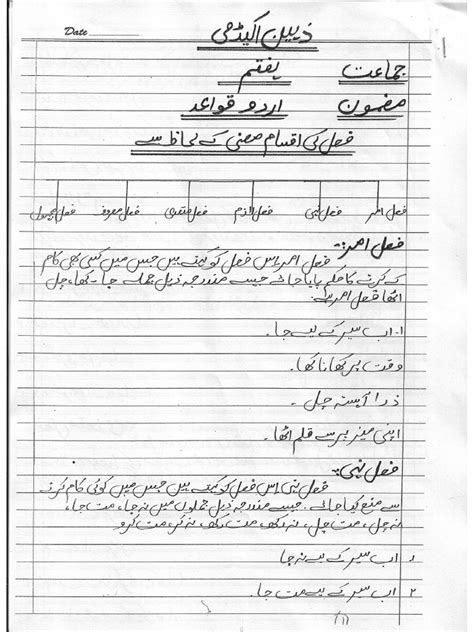 Date
ذہین اکیڈمی
جماعت ہفتم
مضمون اردو قواعد
فعل کی اقسام معنی کے لحاظ سے
فعل امر فعل نہی فعل لازم فعل متعدی فعل معروف فعل مجہول
فعل امر:-
فعل امر اس فعل کو کہتے ہیں جس میں کسی بھی کام
کے کرنے کا حکم پایا جائے جیسے مندرجہ ذیل جملے جا - کھا، چل
اٹھا فعل امر ہے
۱- اب سیر کے لیے جا۔
وقت پر کھانا کھا۔
ذرا آہستہ چل۔
اپنی میز پر سے قلم اٹھا۔
فعل نہی:-
فعل نہی اس فعل کو کہتے ہیں جس میں کوئی کام کرنے
سے منع کیا جائے۔ جیسے مندرجہ ذیل جملوں میں نہ جا، مت جا،
نہ چل، مت چل، نہ رکھ، مت رکھ، نہ کر، مت کرو
۱ اب سیر کے لیے نہ جا
۲ اب سیر کے لیے مت جا۔